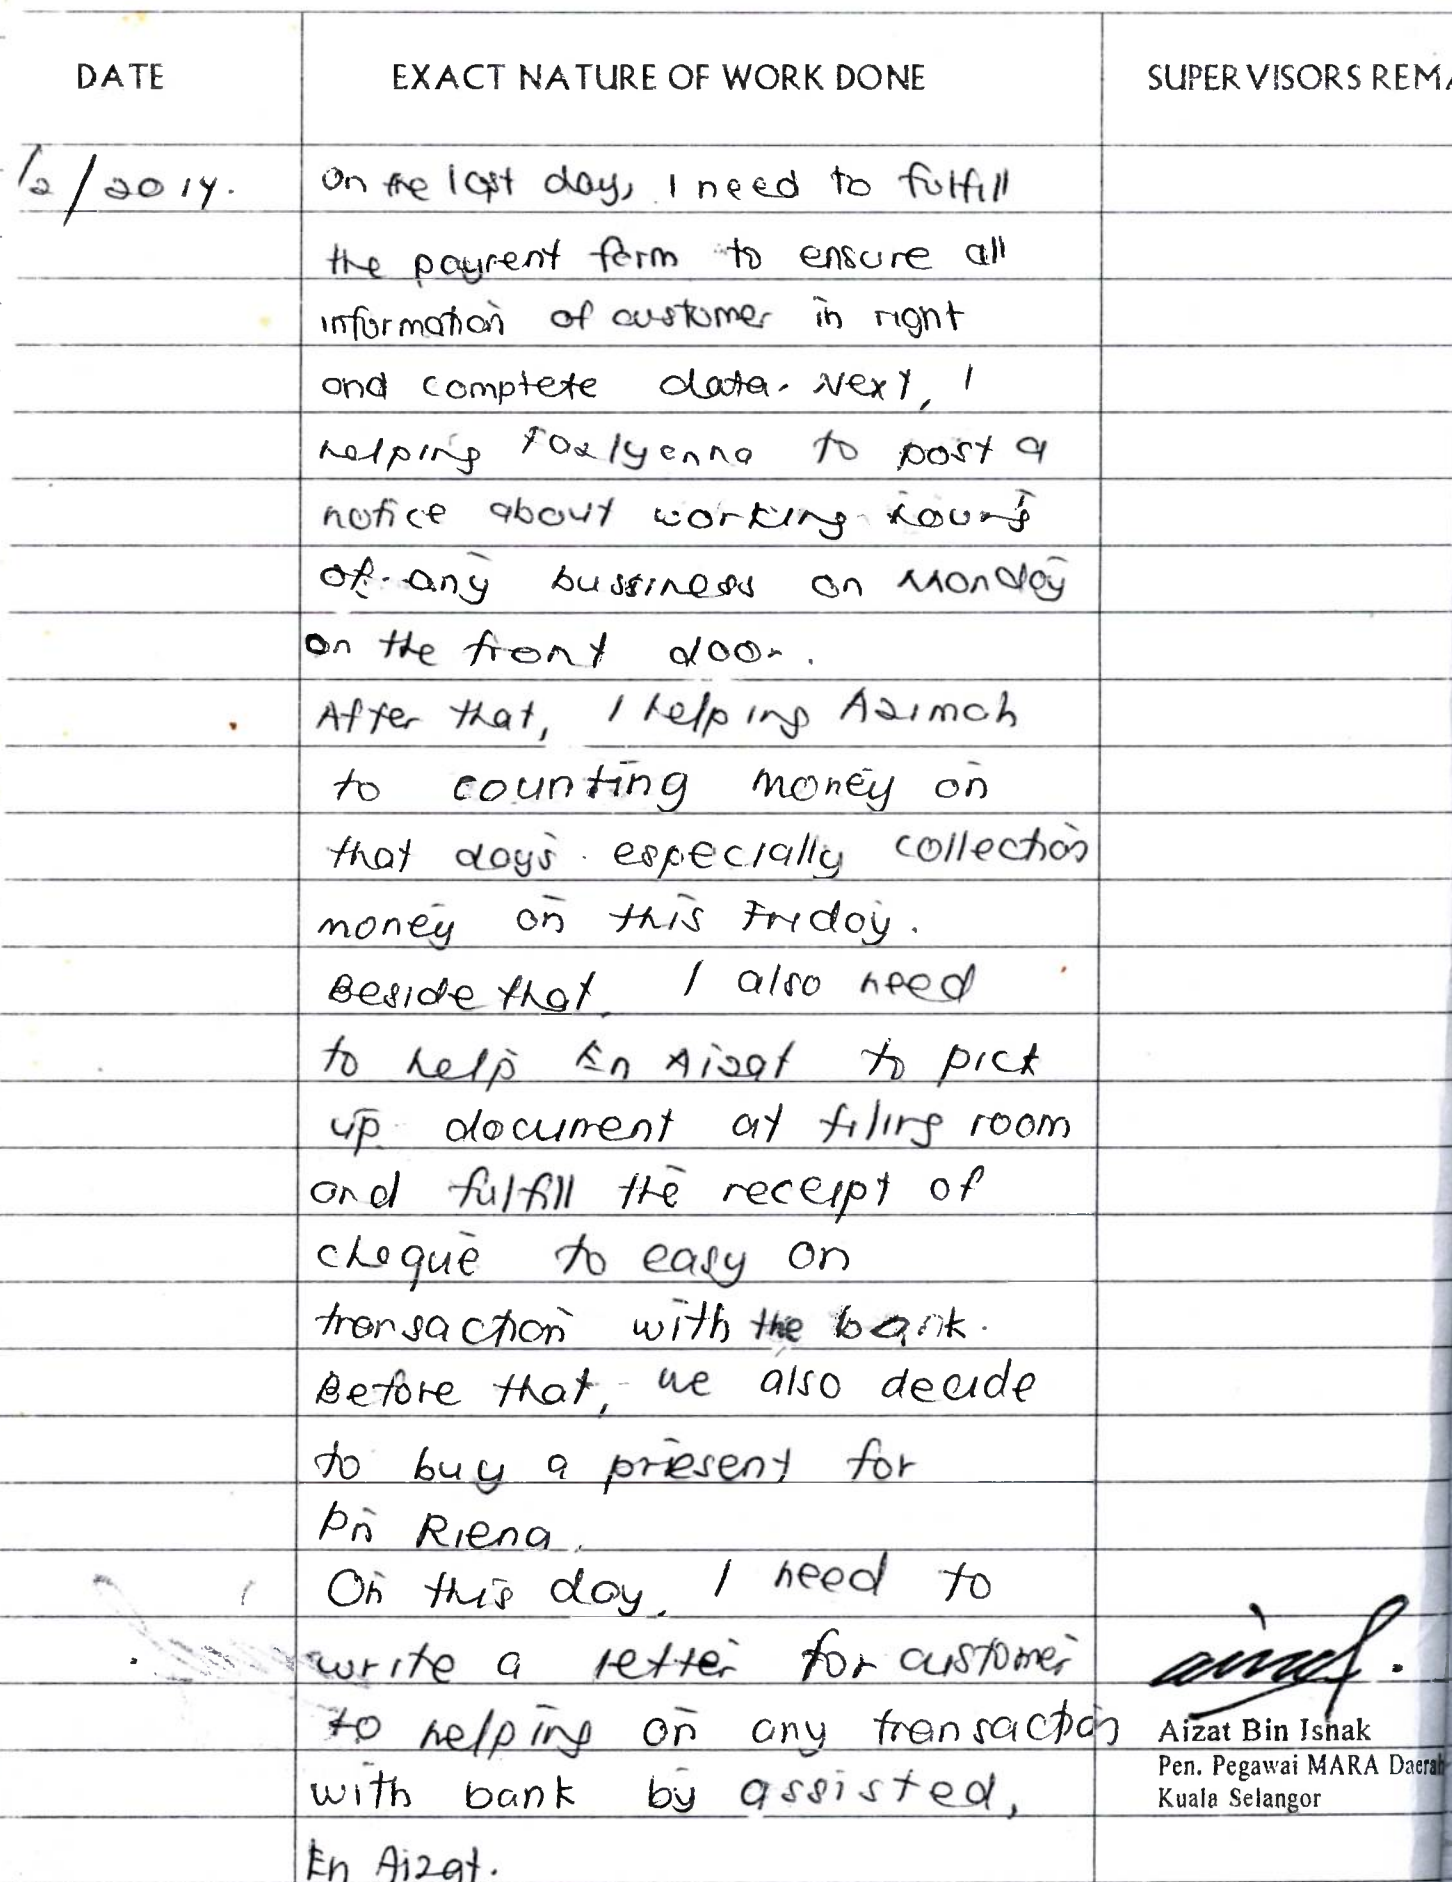 DATE EXACT NATURE OF WORK DONE SUPERVISORS REMA
/2/2014. On the last day, I need to fulfill
the payment form to ensure all
information of customer in right
and complete data. Next, I
helping Fazlyenna to post a
notice about working hours
of any bussiness on Monday
on the front door.
After that, I helping Azimah
to counting money on
that days especially collection
money on this Friday.
Beside that, I also need
to help En Aizat to pick
up document at filing room
and fulfill the receipt of
cheque to easy on
transaction with the bank.
Before that, we also decide
to buy a present for
Pn Riena.
On this day, I need to
write a letter for customer
to helping on any transaction
with bank by assisted,
En Aizat.
Aizat Bin Isnak
Pen. Pegawai MARA Daerah
Kuala Selangor